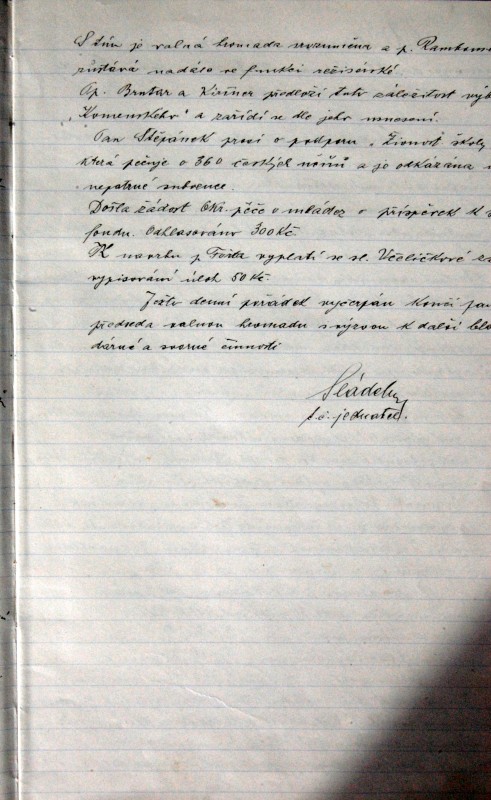 S tím je valná hromada srozuměna a p. Rambous
zůstává nadále ve funkci režisérské.
Pp. Bruter a Kiršner předloží tuto záležitost výb
„Komenského" a zařídí se dle jeho usnesení.
Pan Štěpánek prosí o podporu „Živnost. školy
která pečuje o 360 českých učňů a je odkázána
nepatrné subvence.
Došla žádost Okr. péče o mládež o příspěvek k
fondu. Odhlasováno 300 Kč.
K návrhu p. Foita vyplatí se sl. Včeličkové za
vypisování úloh 50 Kč.
Ježto denní pořádek vyčerpán končí pan
předseda valnou hromadu s výzvou k další bla
dárné a svorné činnosti
Sládek
t. č. jednatel.